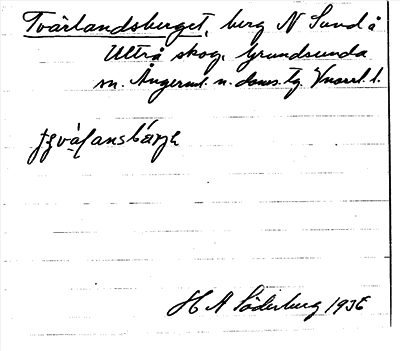 Tvärlandsberget, berg N Sund å
Ultrå skog, Grundsunda
sn. Ångerml. n. doms. tg. Vnorrl. l.
H A Söderberg 1935